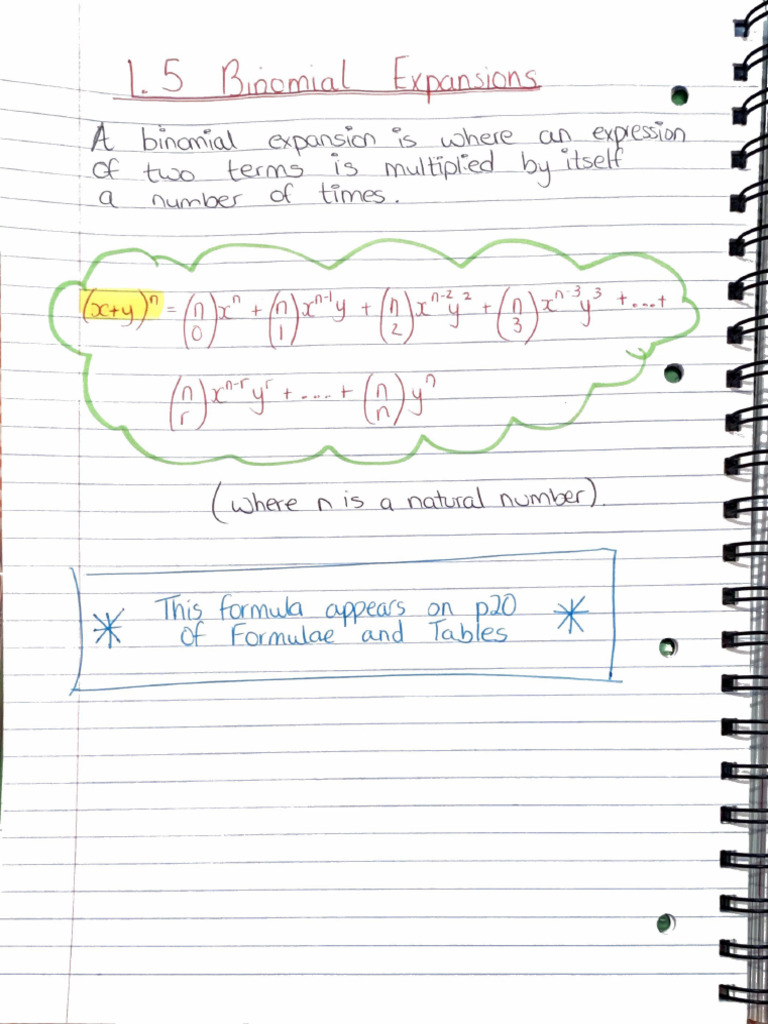 1.5 Binomial Expansions
A binomial expansion is where an expression
of two terms is multiplied by itself
a number of times.
(x+y)ⁿ = (n 0)xⁿ + (n 1)xⁿ⁻¹y + (n 2)xⁿ⁻²y² + (n 3)xⁿ⁻³y³ +....+
(n r)xⁿ⁻ʳyʳ + .... + (n n)yⁿ
(where n is a natural number).
* This formula appears on p20 *
of Formulae and Tables